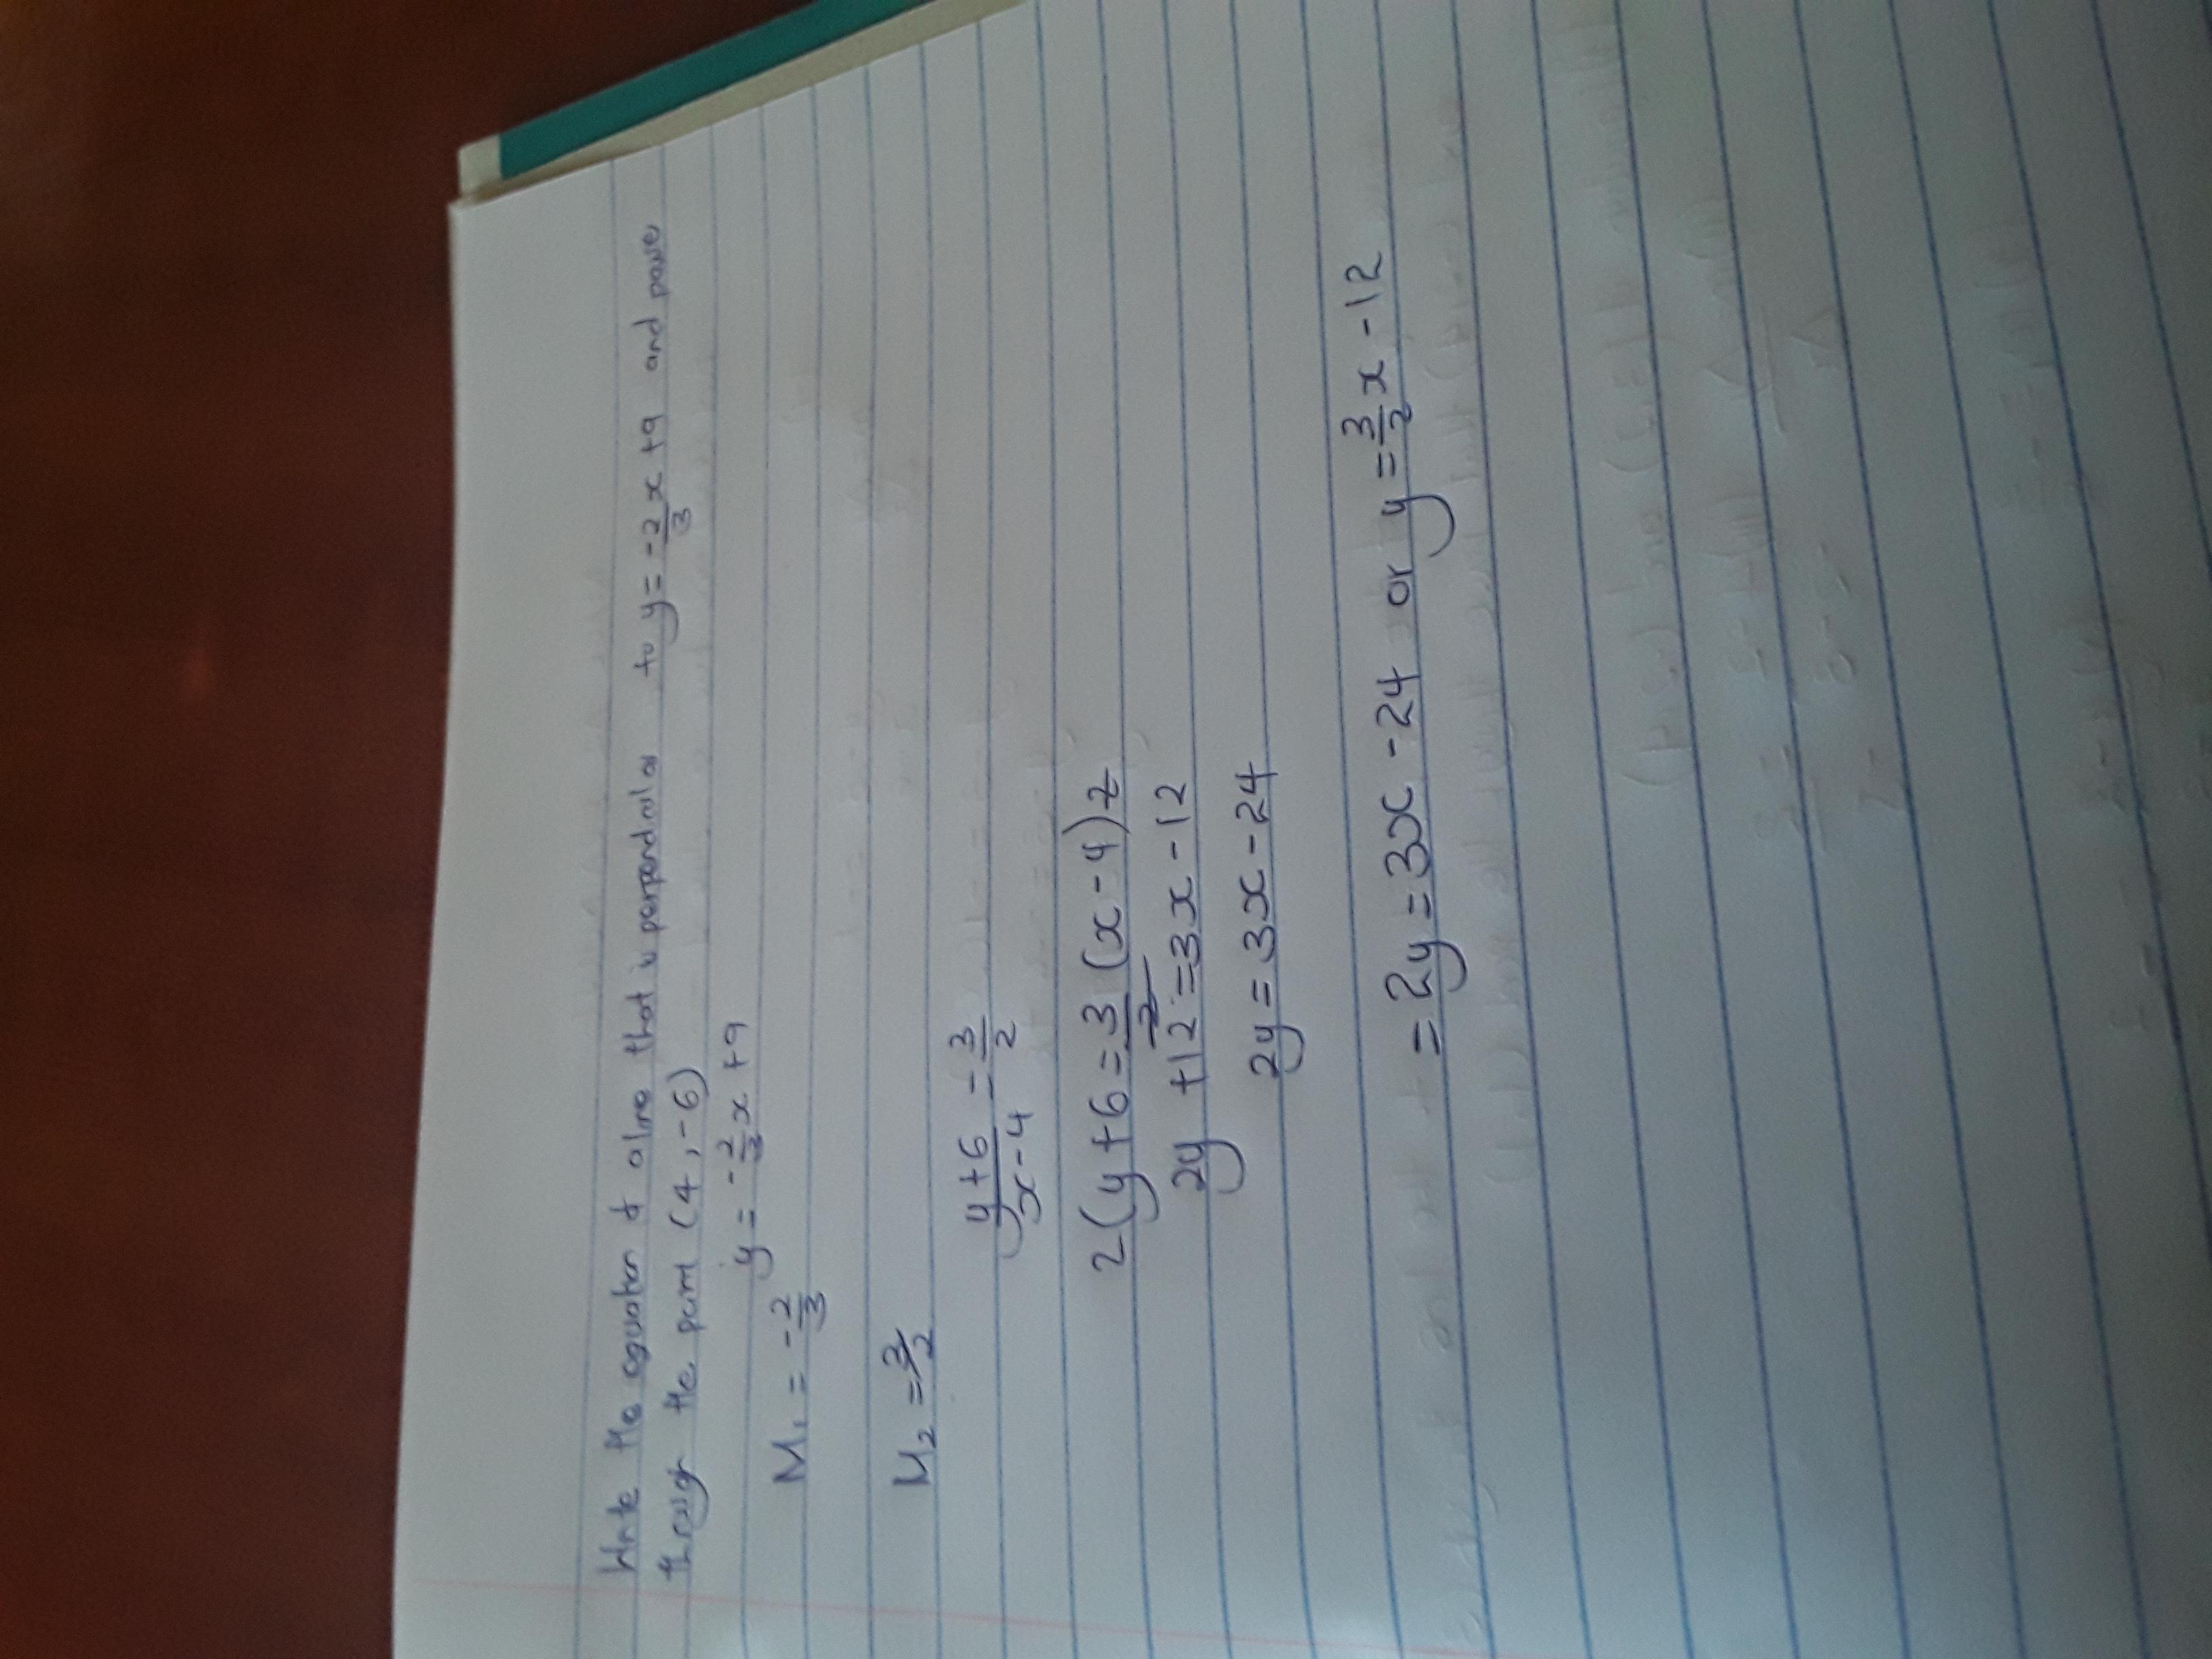 Write the equation of a line that is perpendicular to y = -2/3 x + 9 and passe
through the point (4, -6)
y = -2/3 x + 9
M₁ = -2/3
M₂ = 3/2
y+6/x-4 = 3/2
2(y+6 = 3/2 (x-4)2
2y +12 = 3x -12
2y = 3x - 24
= 2y = 3x - 24 or y = 3/2 x - 12